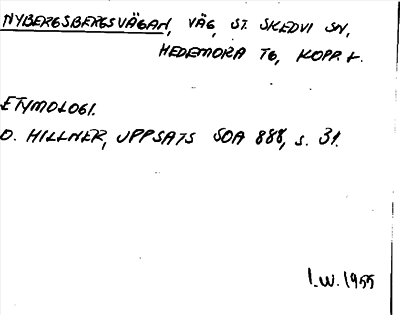 NYBERGSBERGSVÄGAN, VÄG, ST. SKEDVI SN,
HEDEMORA TG, KOPP. L.
ETYMOLOGI.
O. HILLNER, UPPSATS SOA 888, S. 31.
I.W. 1955